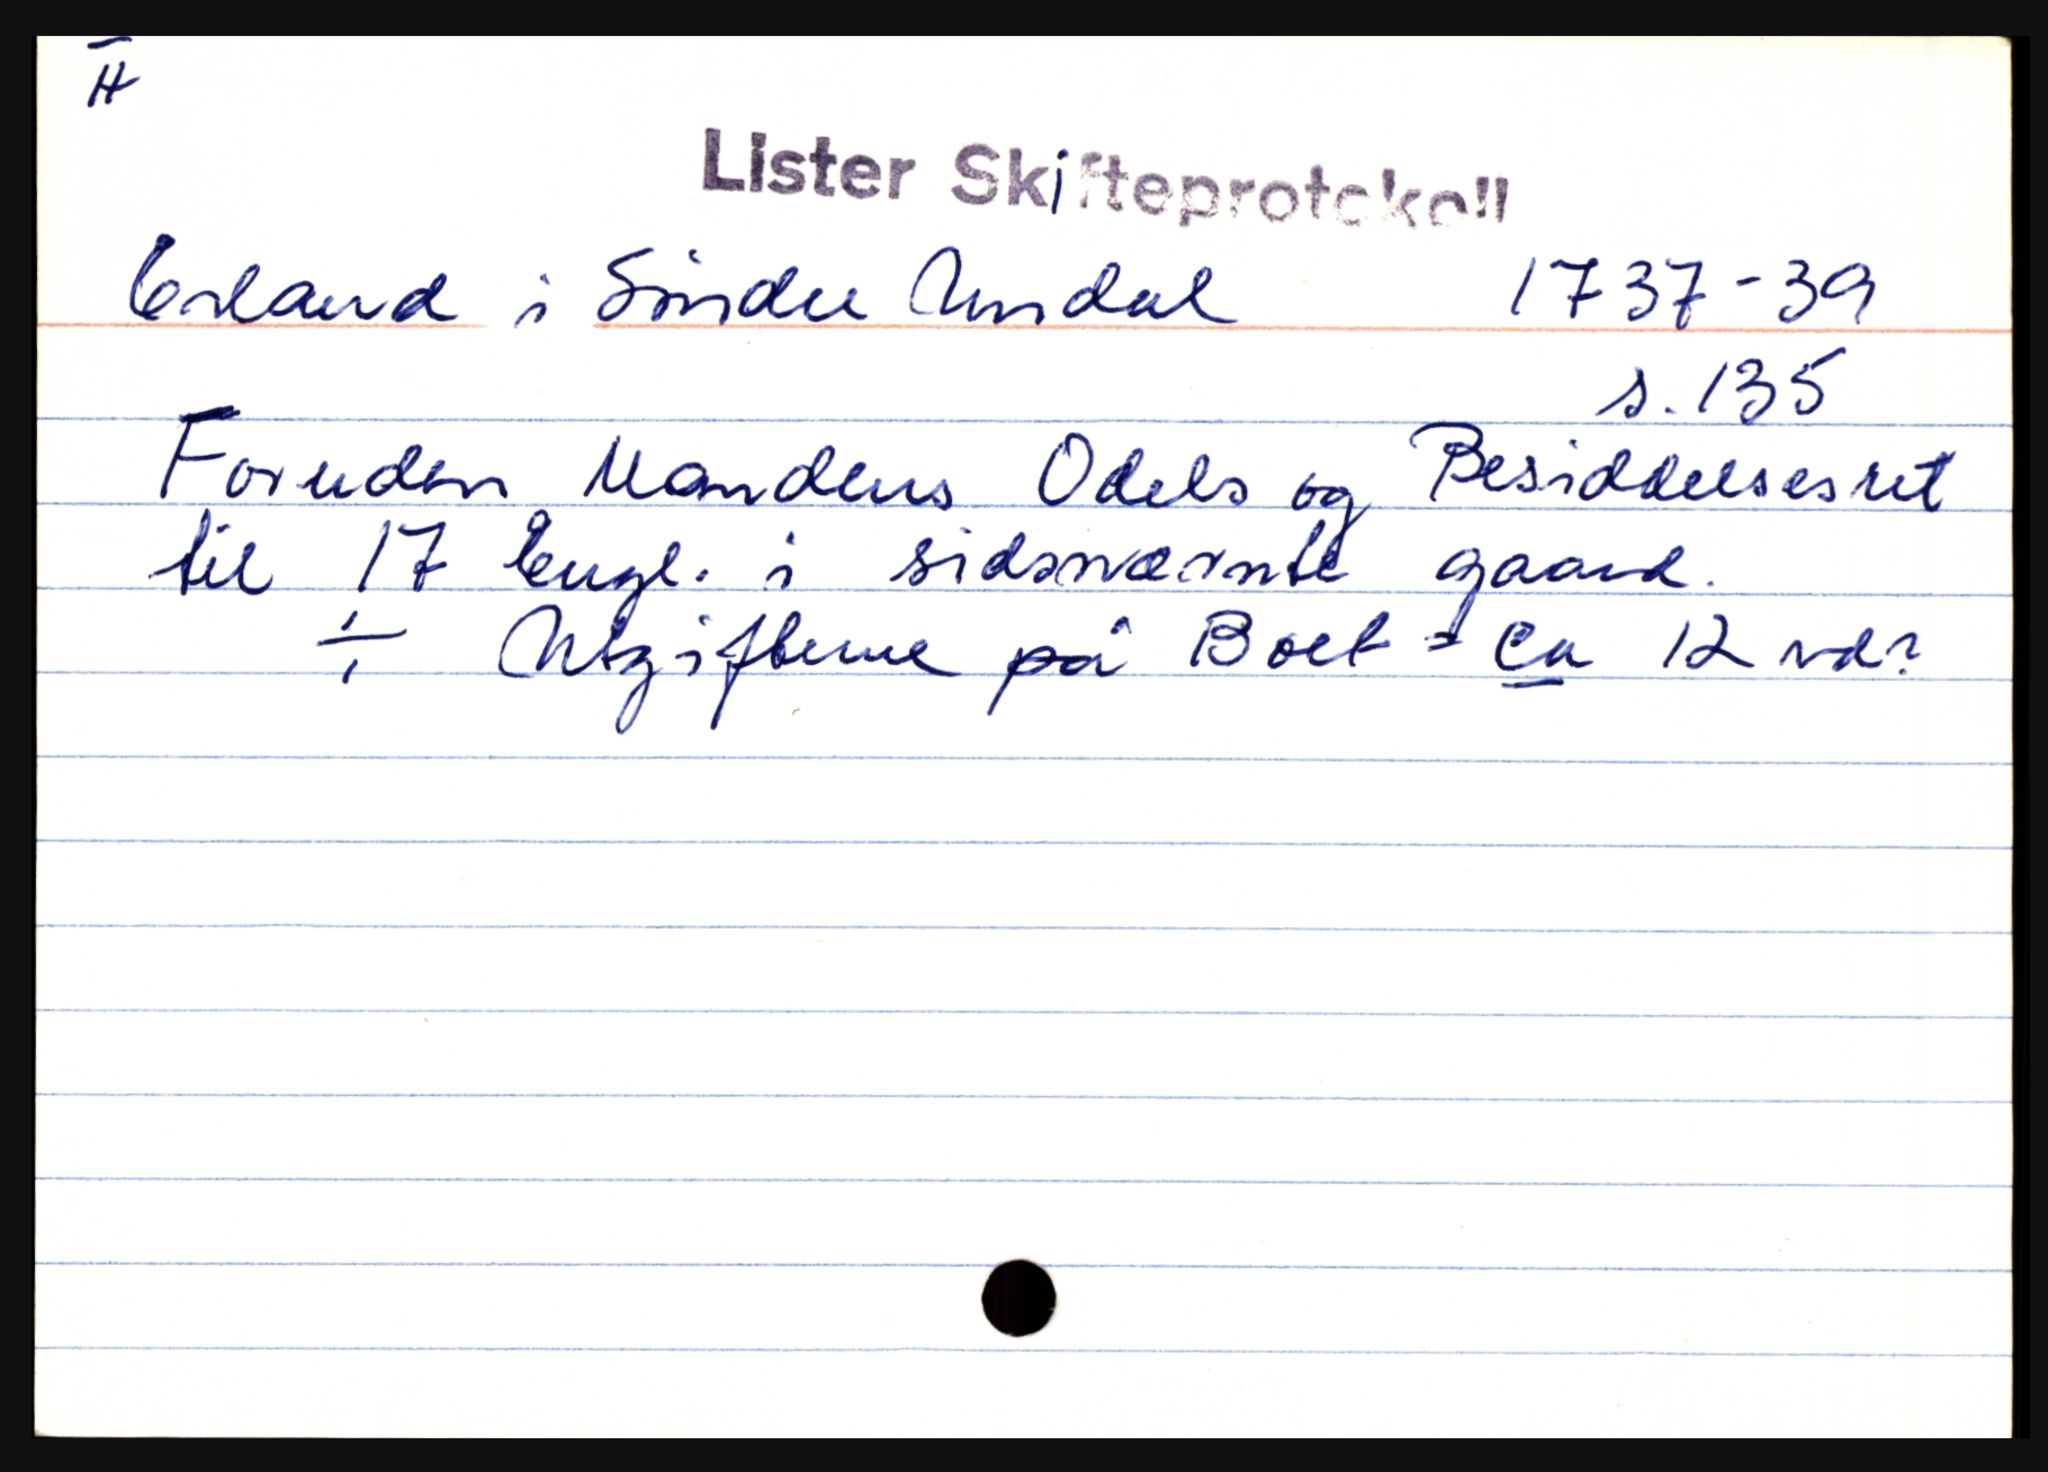 H
Lister Skifteprotokoll
Erland i Söndre Undal 1737-39
s. 135
Foruden Mandens Odels og Besiddelsesret
til 17 Engl. i sidsnævnte gaard.
÷ Utgifterne på Boet = ca 12 rd?